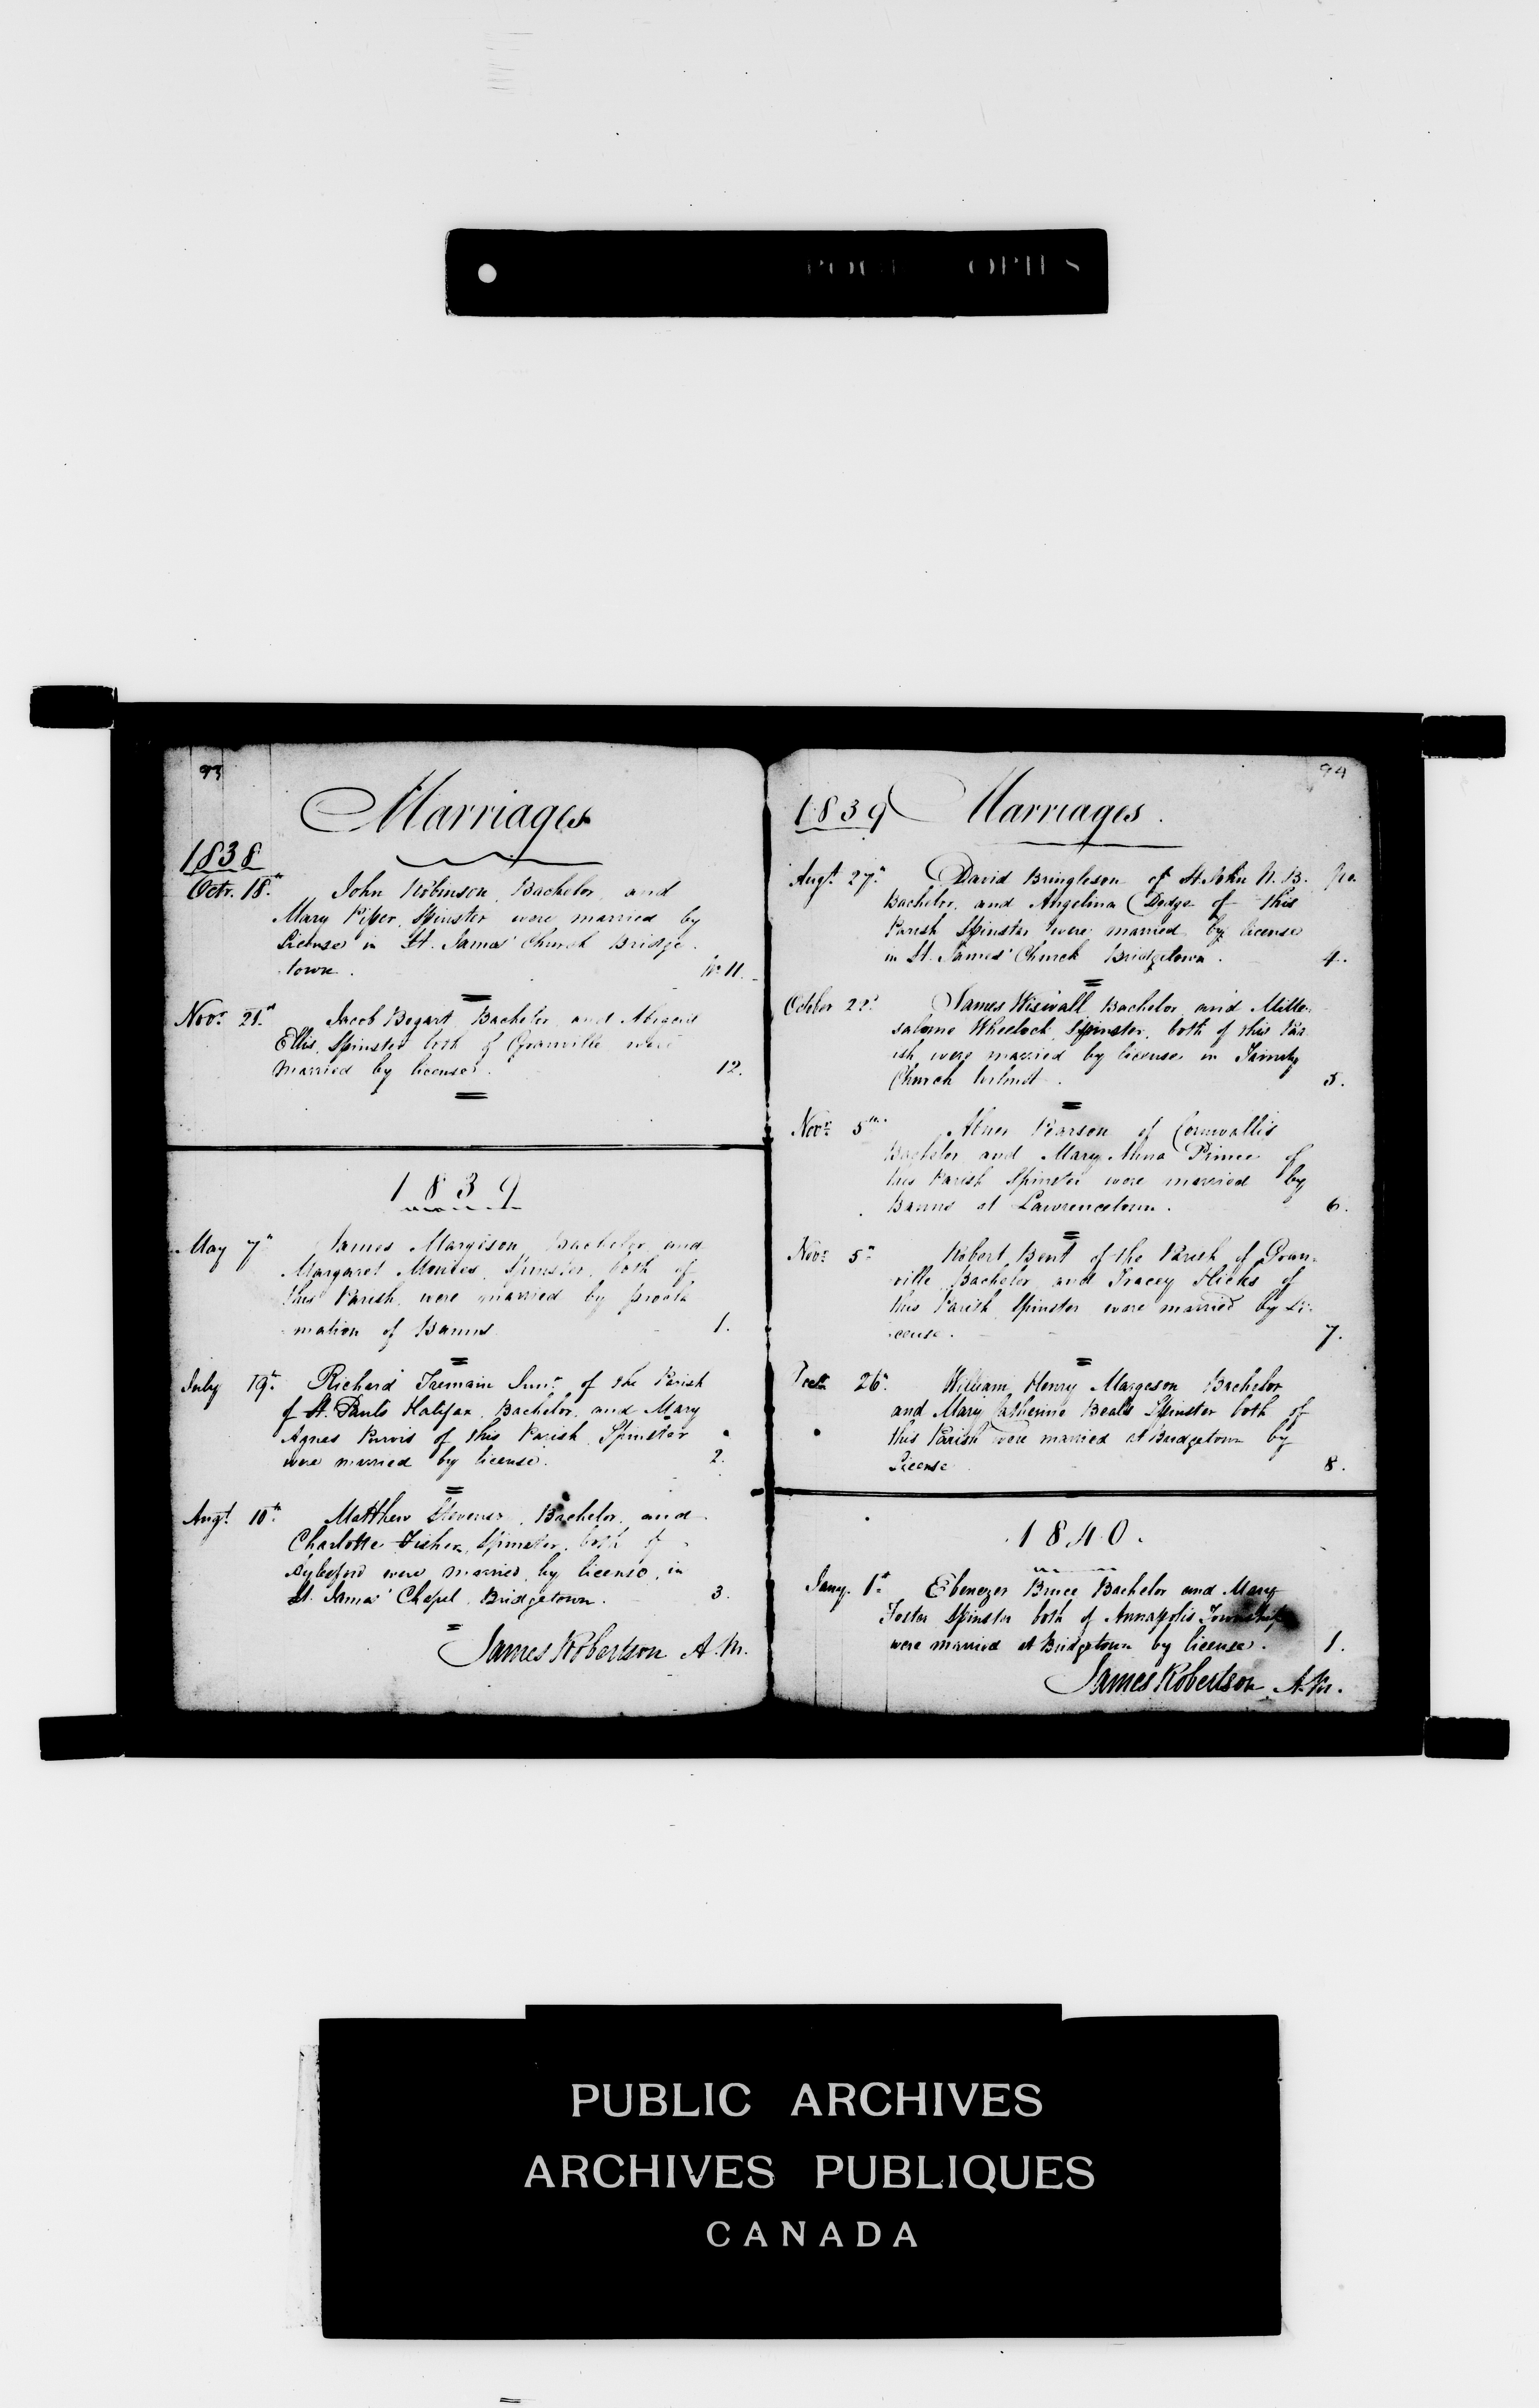 93
Marriages
1838
Octr. 18th John Robinson, Bachelor, and
Mary Piper, Spinster were married by
License in St. James' Church Bridge-
town. No. 11.
Novr. 21st Jacob Bogart Bachelor and Abigail
Ellis, Spinster both of Granville were
married by license. 12.
1839
May 7th James Margison Bachelor and
Margaret Spinster, both of
this Parish, were married by procla
mation of Banns 1.
July 19th. Richard Tremain Junr. of the Parish
of St. Pauls Halifax, Bachelor, and Mary
Agnes Purvis of this Parish Spinster
were married by license. 2.
Augt. 10th. Matthew Bachelor, and
Charlotte Fisher, Spinster, both of
Aylesford were married by license, in
St. James' Chapel, Bridgetown. 3.
James Robertson A.M.
94
1839 Marriages.
Augt. 27th David Bringleson of St. John N.B. No.
Bachelor, and Angelina Dodge of this
Parish Spinster were married by license
in St. James' Church Bridgetown. 4.
October 22d James Wiswall Bachelor and
Wheelock Spinster, both of this Par
ish were married by license in Trinity
Church Wilmot. 5.
Novr. 5th. Abner Pearson of Cornwallis
Bachelor and Mary Anna Prince of
this Parish Spinster were married by
Banns at Lawrencetown. 6.
Novr. 5th Robert Bent of the Parish of Gran-
ville Bachelor and Tracey Hicks of
this Parish Spinster were married by Li-
cense. 7.
26th. William Henry Margeson Bachelor
and Mary Catherine Beals Spinster both of
this Parish were married at Bridgetown by
License 8.
1840.
Jany. 1st. Ebenezer Bruce Bachelor and Mary
Foster Spinster both of Annapolis Township
were married at Bridgetown by license. 1.
James Robertson A.M.
PUBLIC ARCHIVES
ARCHIVES PUBLIQUES
CANADA